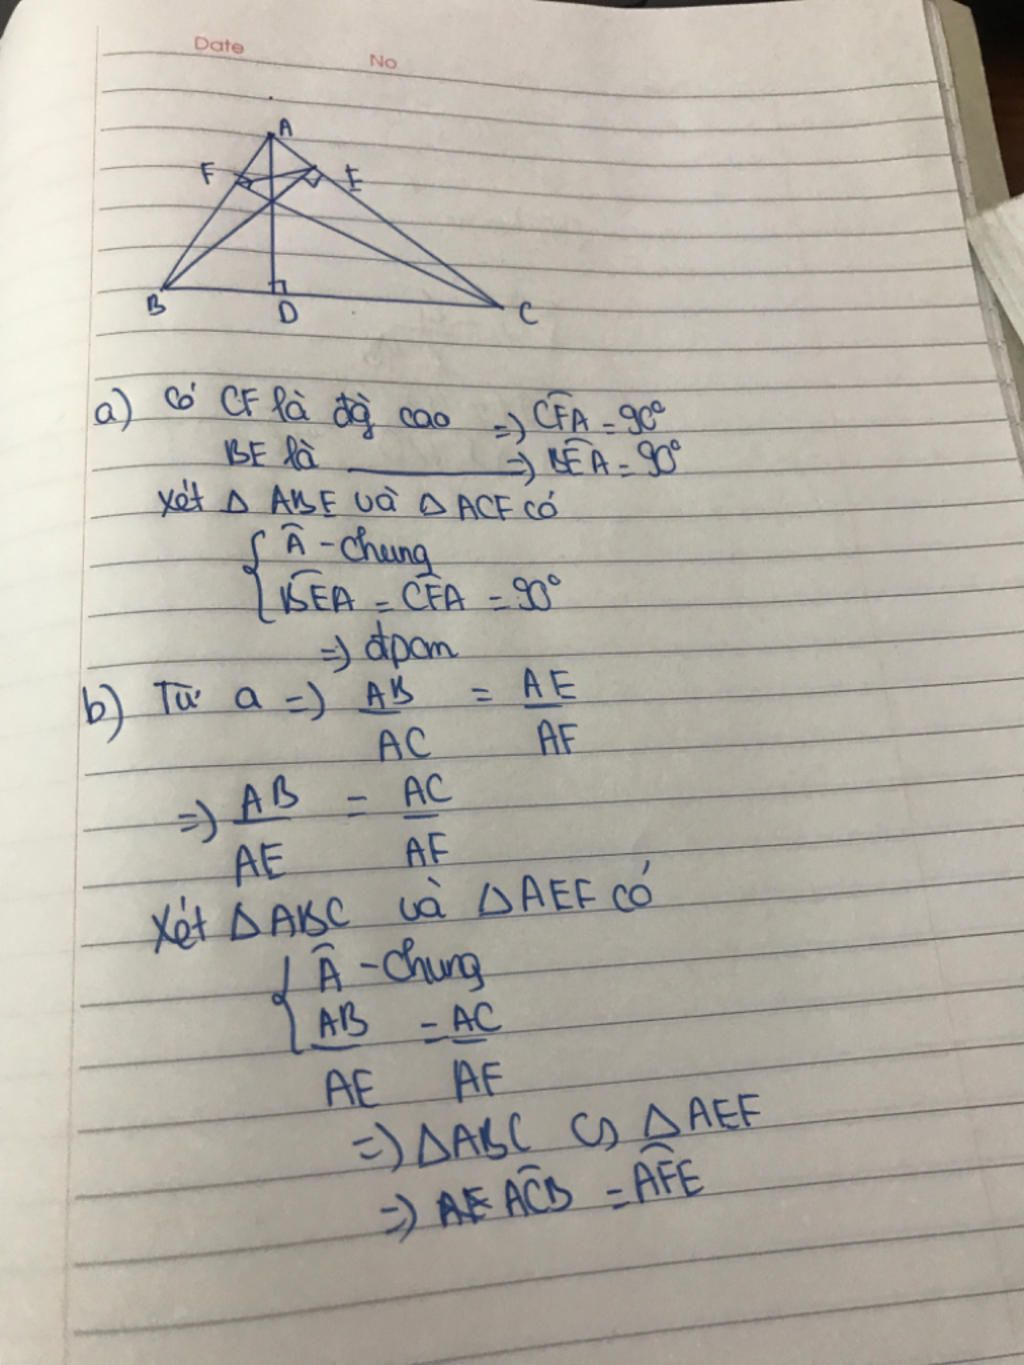 Date
No
A
F
E
B
D
C
a) Có CF là đg cao => CFA = 90°
BE là ——— => BEA = 90°
Xét Δ ABE và Δ ACF có
{ Â - chung
BEA = CFA = 90°
=> đpcm
b) Từ a => AB/AC = AE/AF
=> AB/AE = AC/AF
Xét ΔABC và ΔAEF có
{ Â - chung
AB/AE = AC/AF
=> ΔABC ∽ ΔAEF
=> ACB = AFE